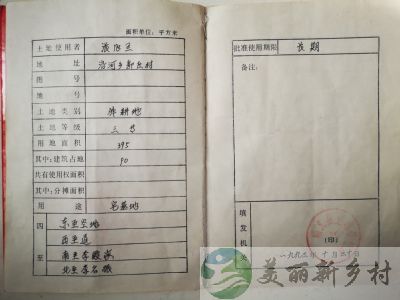 面积单位：平方米
土地使用者
地址
图号
地号
土地类别 非耕地
土地等级 三等
用地面积 395
其中:建筑占地 90
共有使用权面积
其中:分摊面积
用途 宅基地
四至
东至空地
西至道
南至李
北至李
批准使用期限 长期
备注：
填发机关
(印)
一九九三年十月三十日
美丽新乡村